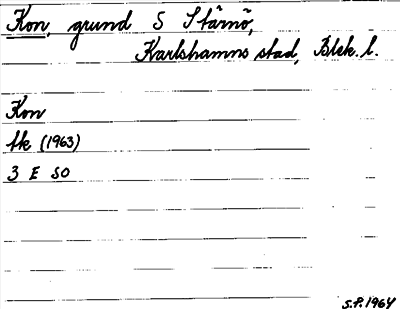 Kon, grund S Stärnö,
Karlshamns stad, Blek. l.
Kon
fk (1963)
3 E SO
S.P. 1964